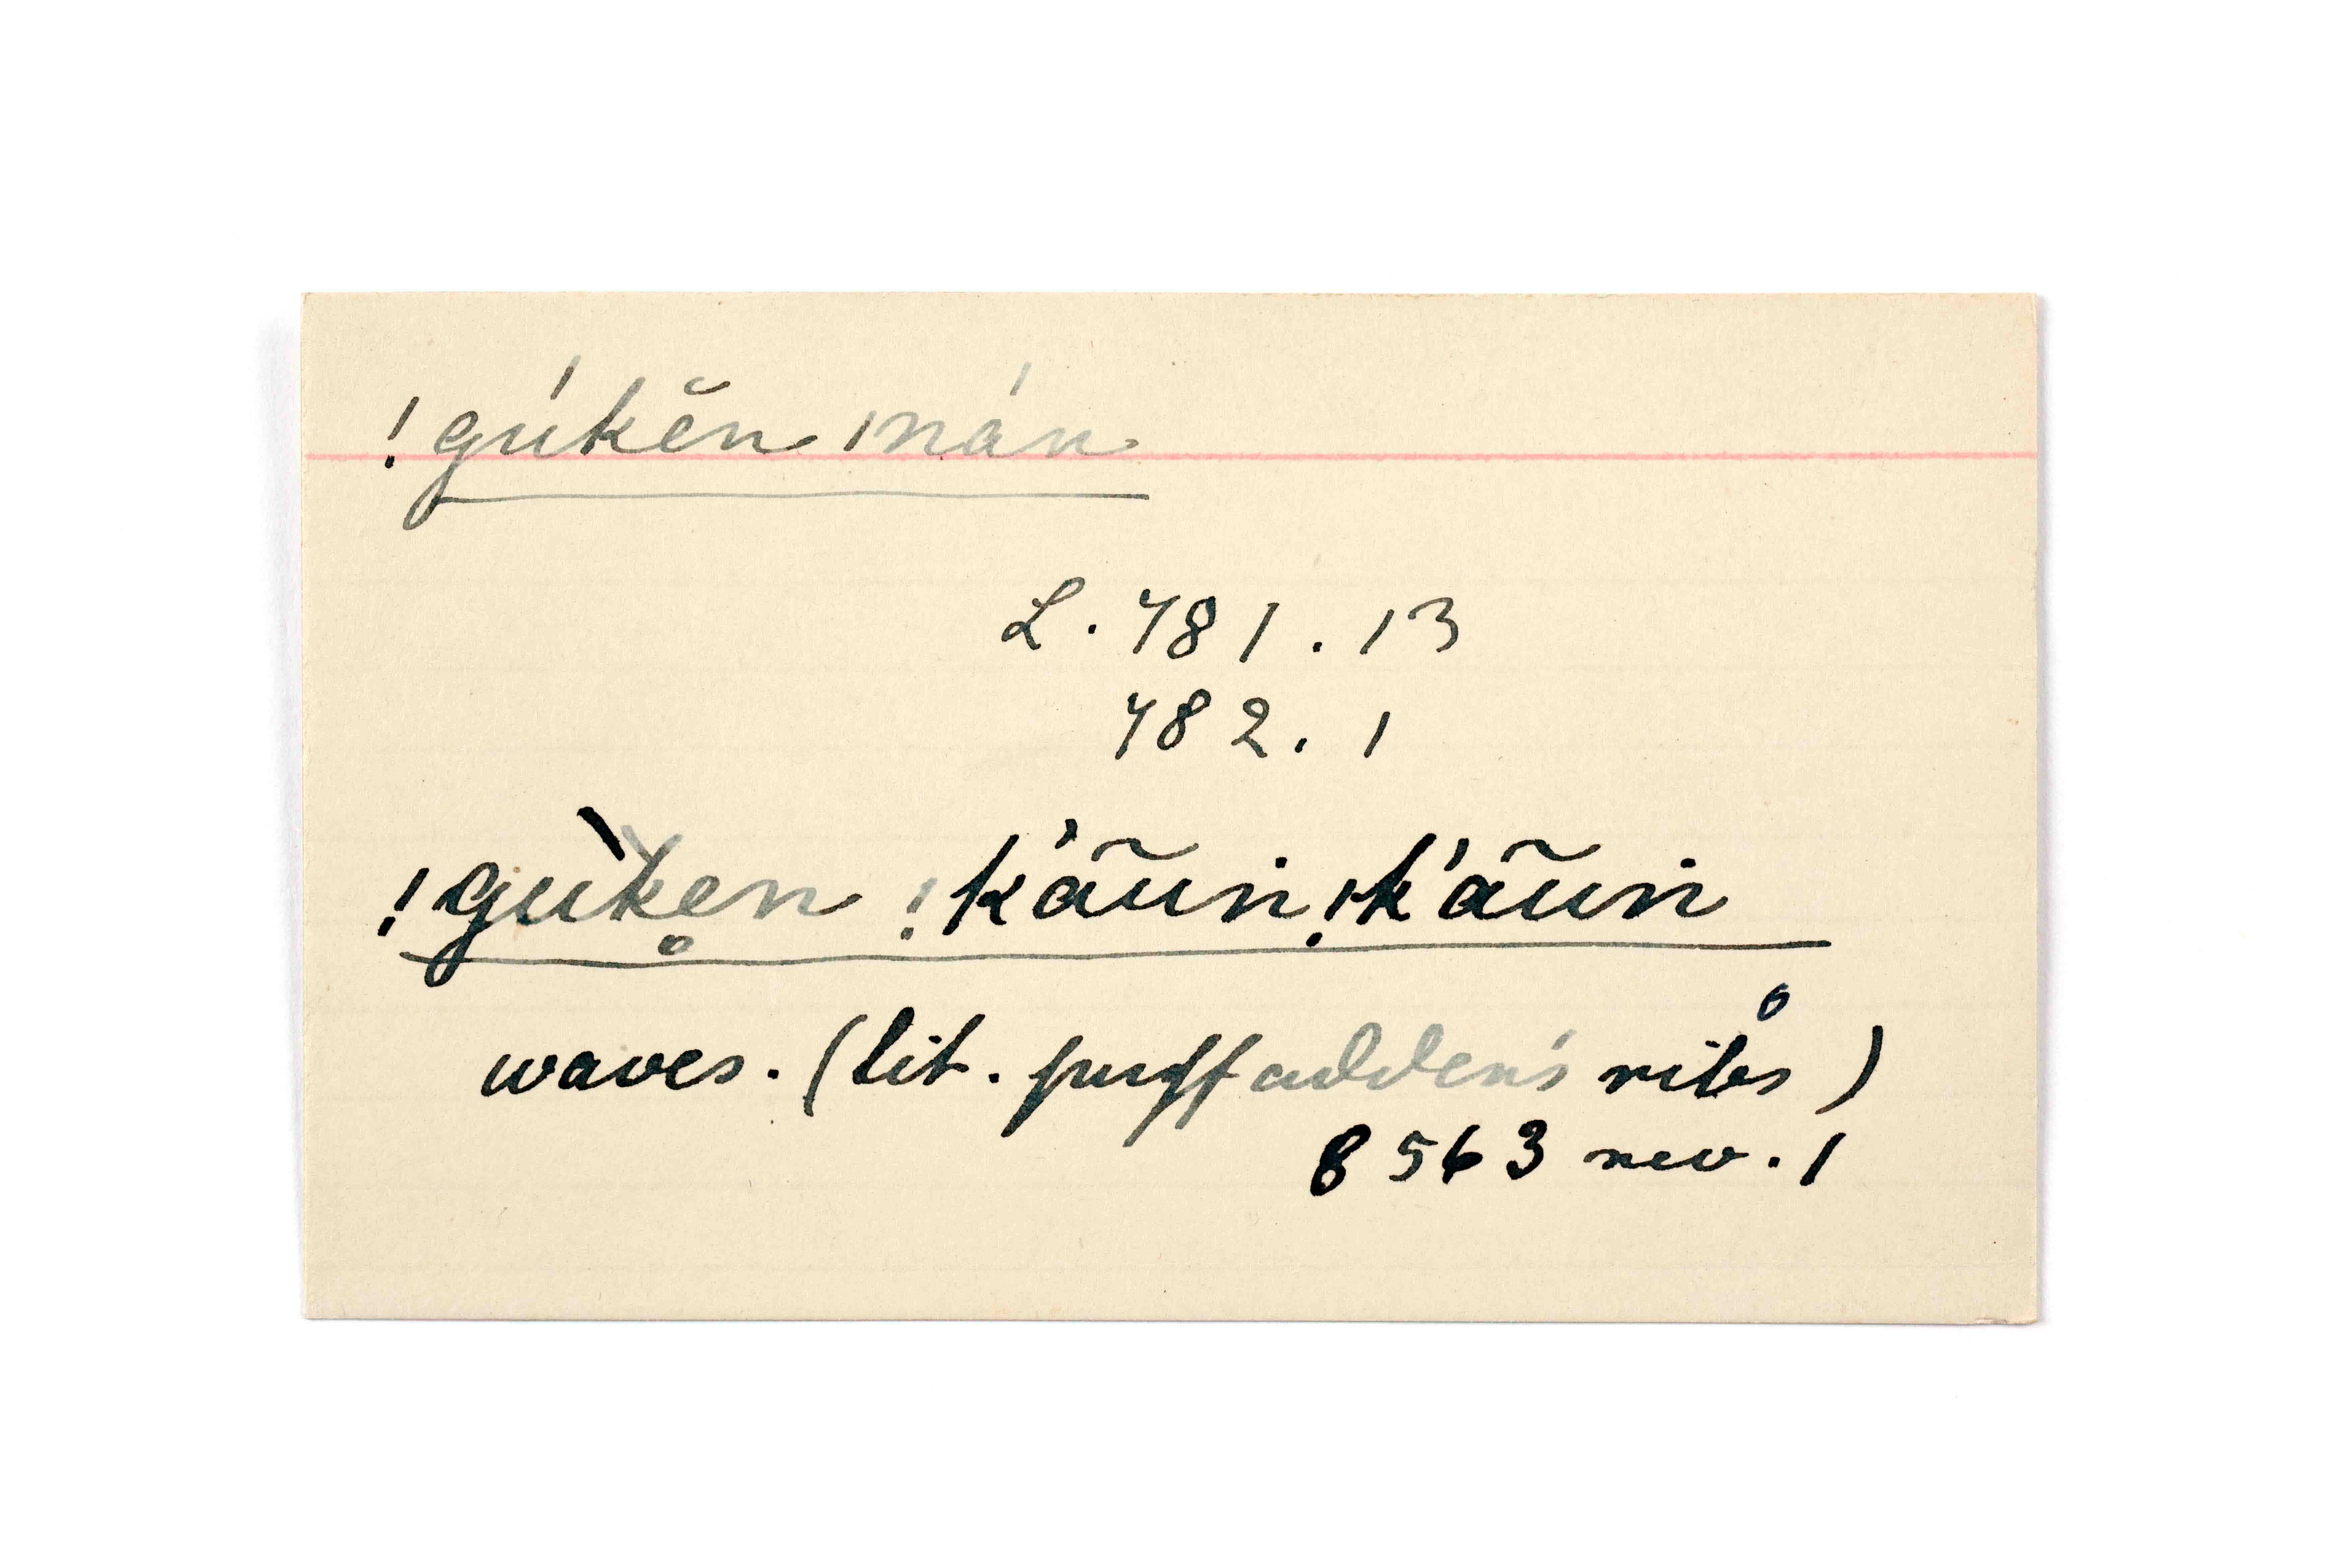 !gúkĕn ǀnán
L. 481. 13
482. 1
!gùke̥n !k'ãũn!k'ãũn
waves. (lit. puffadder's ribs)
8563 rev. 1